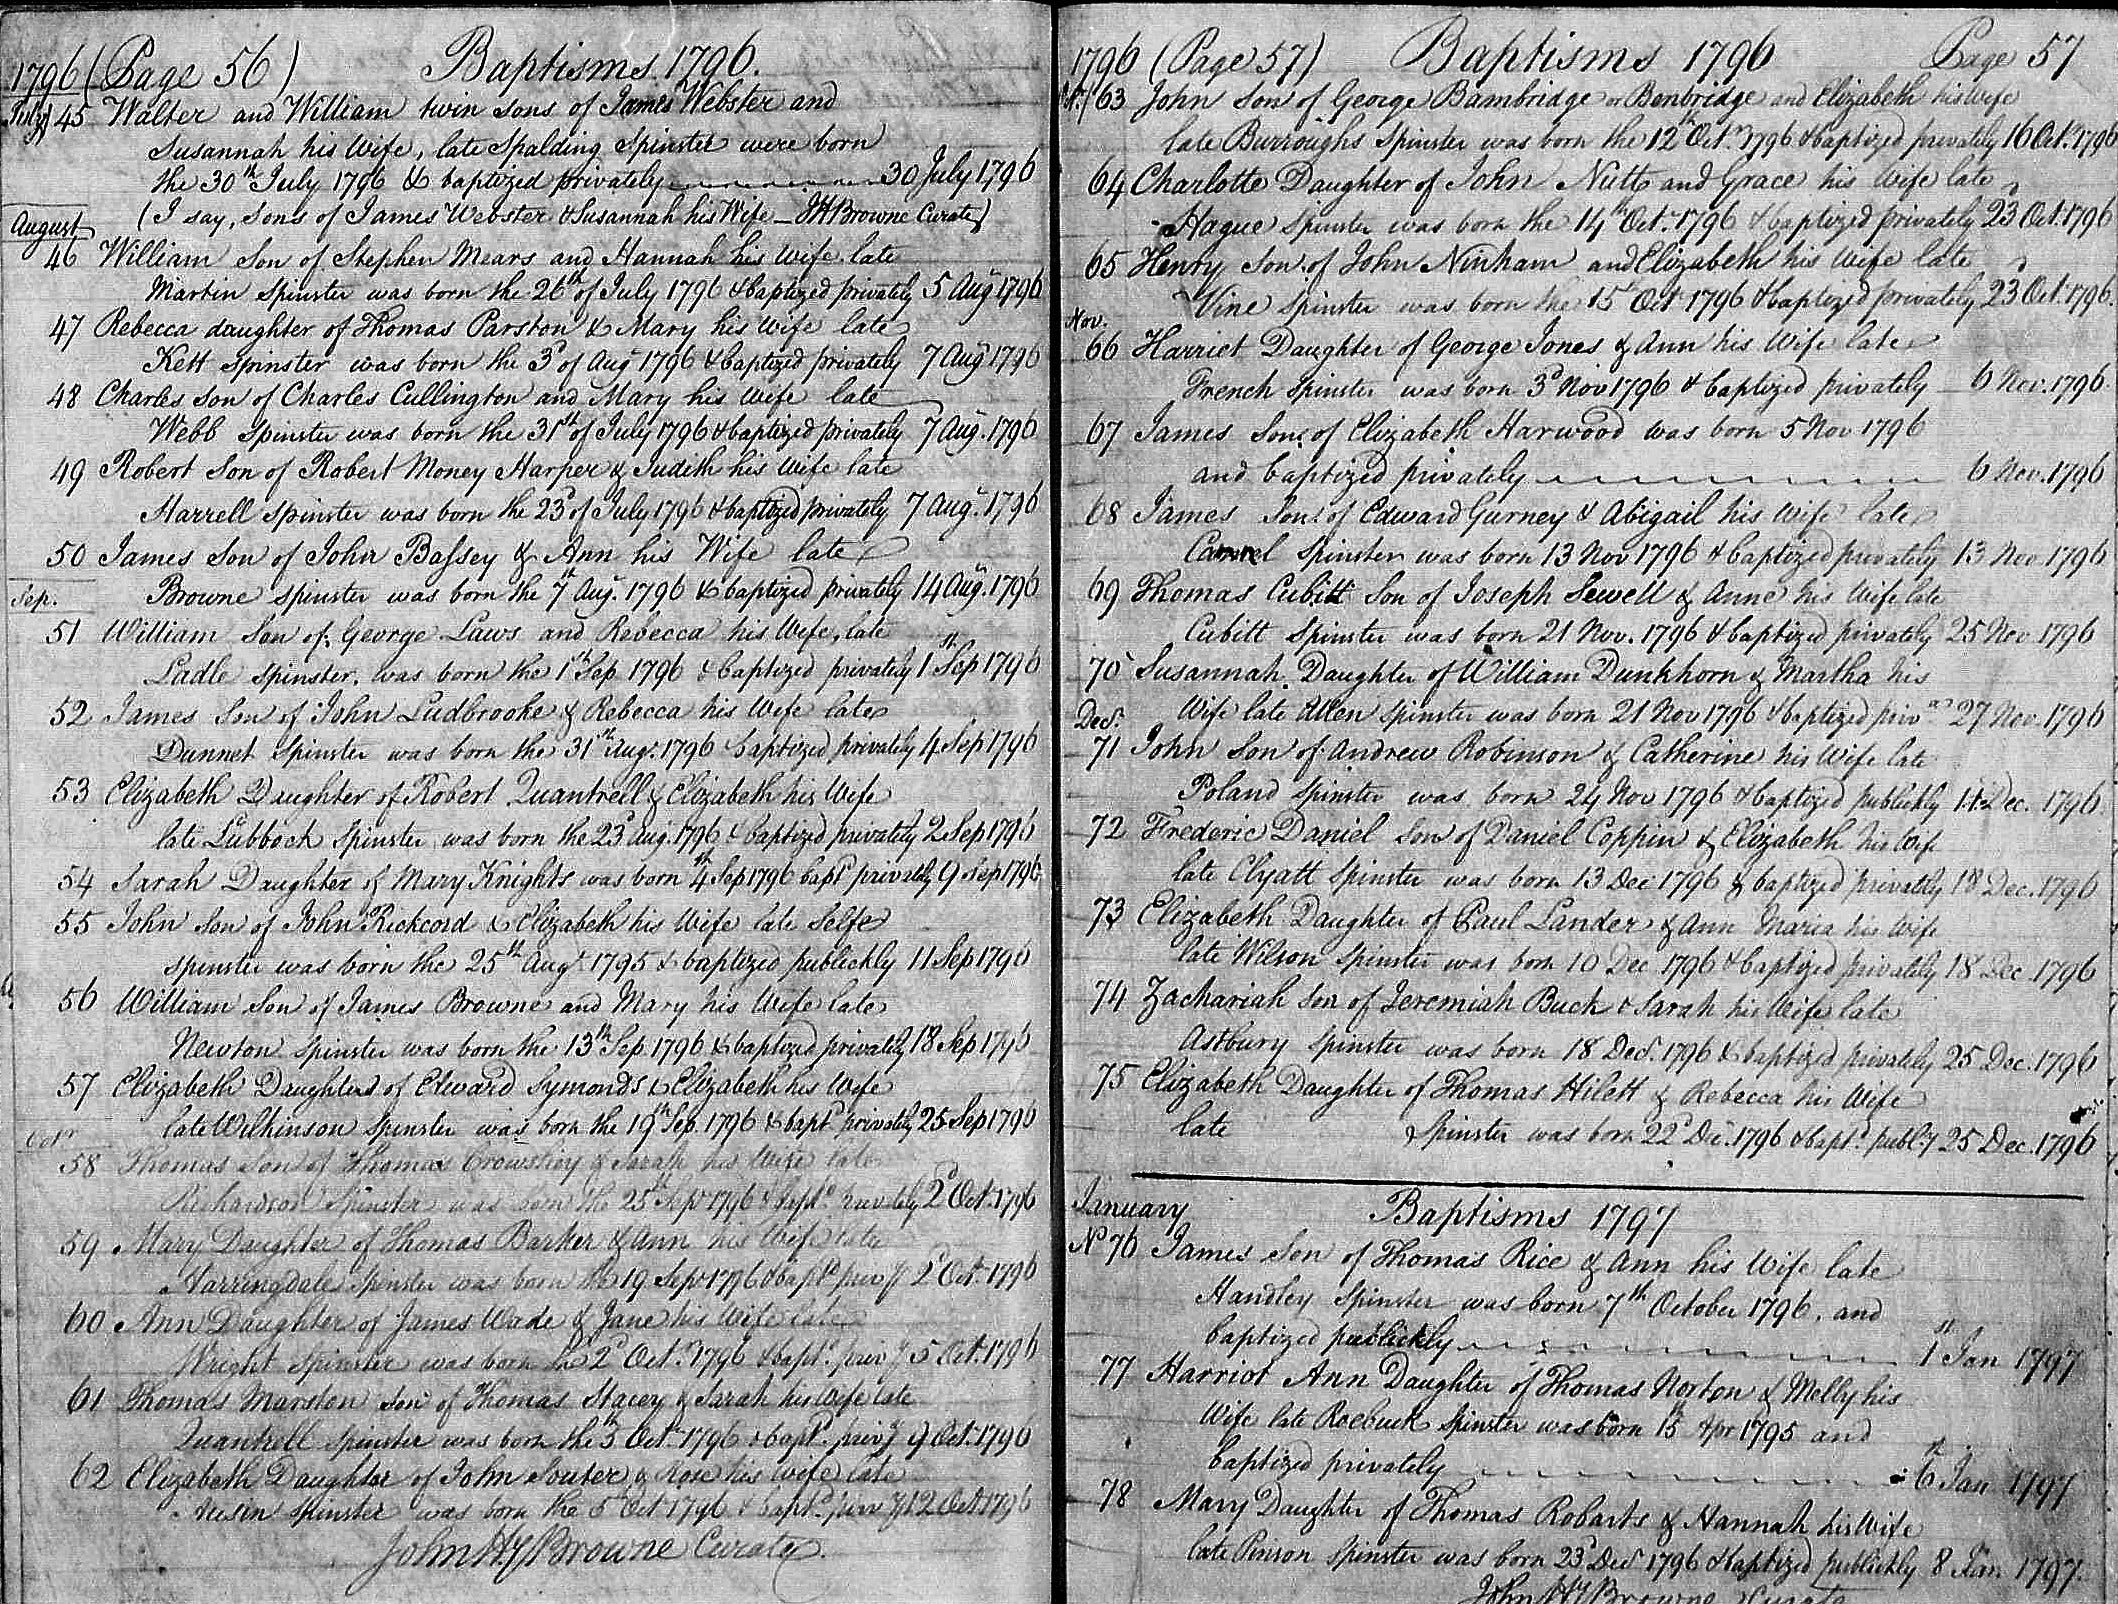 1796 (Page 56) Baptisms 1796.
July 45 Walter and William twin sons of James Webster and
Susannah his Wife, late Spalding Spinster were born
the 30th July 1796 & baptized privately 30 July 1796
(I say, Sons of James Webster & Susannah his Wife - JHBrowne Curate)
August
46 William Son of Stephen Mears and Hannah his Wife late
Martin Spinster was born the 26th of July 1796 & baptized privately 5 Aug 1796
47 Rebecca daughter of Thomas Parston & Mary his Wife late
Kett Spinster was born the 3d of Aug 1796 & baptized privately 7 Aug 1796
48 Charles Son of Charles Cullington and Mary his Wife late
Webb Spinster was born the 31st of July 1796 & baptized privately 7 Aug. 1796
49 Robert Son of Robert Money Harper & Judith his Wife late
Harrell Spinster was born the 23d of July 1796 & baptized privately 7 Aug. 1796
50 James Son of John Bassey & Ann his Wife late
Browne Spinster was born the 7th Aug. 1796 & baptized privately 14 Aug. 1796
Sep.
51 William Son of George Laws and Rebecca his Wife, late
Ladle Spinster, was born the 1st Sep 1796 & baptized privately 1st Sep 1796
52 James Son of John Ludbrooke & Rebecca his Wife late
Dannet Spinster was born the 31st Aug. 1796 & baptized privately 4 Sep 1796
53 Elizabeth Daughter of Robert Quantrell & Elizabeth his Wife
late Lubbock Spinster was born the 23d Aug. 1796 & baptized privately 2 Sep 1796
54 Sarah Daughter of Mary Knights was born 4th Sep 1796 bapd privately 9 Sep 1796
55 John Son of John Rickcord & Elizabeth his Wife late Selfe
Spinster was born the 25th Aug. 1795 & baptized publickly 11 Sep 1796
56 William Son of James Browne and Mary his Wife late
Newton Spinster was born the 13th Sep 1796 & baptized privately 18 Sep 1796
57 Elizabeth Daughter of Edward Symonds & Elizabeth his Wife
late Wilkinson Spinster was born the 19th Sep. 1796 & bapt privately 25 Sep 1796
Octr
58 Thomas Son of Thomas & Sarah his Wife late
Richardson Spinster was born the 25th Sepr 1796 & bapt. privately 2d Oct. 1796
59 Mary Daughter of Thomas Barker & Ann his Wife late
Harringdale Spinster was born the 19 Sepr 1796 & bapd. privy 2d Oct. 1796
60 Ann Daughter of James Wade & Jane his Wife late
Wright Spinster was born the 2d Octr. 1796 & bapt. privy 5 Oct. 1796
61 Thomas Marston Son of Thomas Stacey & Sarah his Wife late
Quantrell Spinster was born the 3 Oct. 1796 & bapt. privy 9 Oct. 1796
62 Elizabeth Daughter of John Souter & Rose his Wife late
Spinster was born the 5 Oct 1796 & bapt. privy 12 Oct 1796
John Hy Browne Curate.
1796 (Page 57) Baptisms 1796 Page 57
63 John Son of George Bambridge or Benbridge and Elizabeth his wife
late Burroughs Spinster was born the 12th Oct. 1796 & baptized privately 16 Oct. 1796
64 Charlotte Daughter of John Nutt and Grace his Wife late
Hague Spinster was born the 14th Oct. 1796 & baptized privately 23d Oct. 1796
65 Henry Son of John Ninham and Elizabeth his Wife late
Vine Spinster was born the 15th Oct 1796 & baptized privately 23d Oct. 1796.
Nov.
66 Harriet Daughter of George Jones & Ann his Wife late
French Spinster was born 3d Nov 1796 & baptized privately 6 Nov. 1796
67 James Son of Elizabeth Harwood was born 5 Nov 1796
and baptized privately 6 Nov. 1796
68 James Son of Edward Gurney & Abigail his Wife late
Spinster was born 13 Nov 1796 & baptized privately 13 Nov 1796
69 Thomas Cubitt Son of Joseph Sewell & Anne his Wife late
Cubitt Spinster was born 21 Nov. 1796 & baptized privately 25 Nov 1796
70 Susannah Daughter of William Dunkhorn & Martha his
Wife late Allen Spinster was born 21 Nov 1796 & baptized priv 27 Nov. 1796
Decr.
71 John Son of Andrew Robinson & Catherine his Wife late
Poland Spinster was born 24 Nov 1796 & baptized publickly Dec. 1796
72 Frederic Daniel Son of Daniel Coppin & Elizabeth his Wife
late Clyatt Spinster was born 13 Dec 1796 & baptized privately 18 Dec. 1796
73 Elizabeth Daughter of Paul Lander & Ann Maria his Wife
late Wilson Spinster was born 10 Dec 1796 & baptized privately 18 Dec. 1796
74 Zachariah Son of Jeremiah Buck & Sarah his Wife late
Astbury Spinster was born 18 Decr. 1796 & baptized privately 25 Dec. 1796
75 Elizabeth Daughter of Thomas Hilett & Rebecca his Wife
late Spinster was born 22d Dec. 1796 & bapt. publy 25 Dec. 1796
January Baptisms 1797
No 76 James Son of Thomas Rice & Ann his Wife late
Handley Spinster was born 7th October 1796, and
baptized publickly 1st Jan 1797
77 Harriot Ann Daughter of Thomas Norton & Melly his
Wife late Roebuck Spinster was born 15th Apr 1795 and
baptized privately 6th Jan 1797
78 Mary Daughter of Thomas Robarts & Hannah his Wife
late Pinson Spinster was born 23d Decr 1796 & baptized publickly 8 Jan. 1797.
John Hy Browne Curate